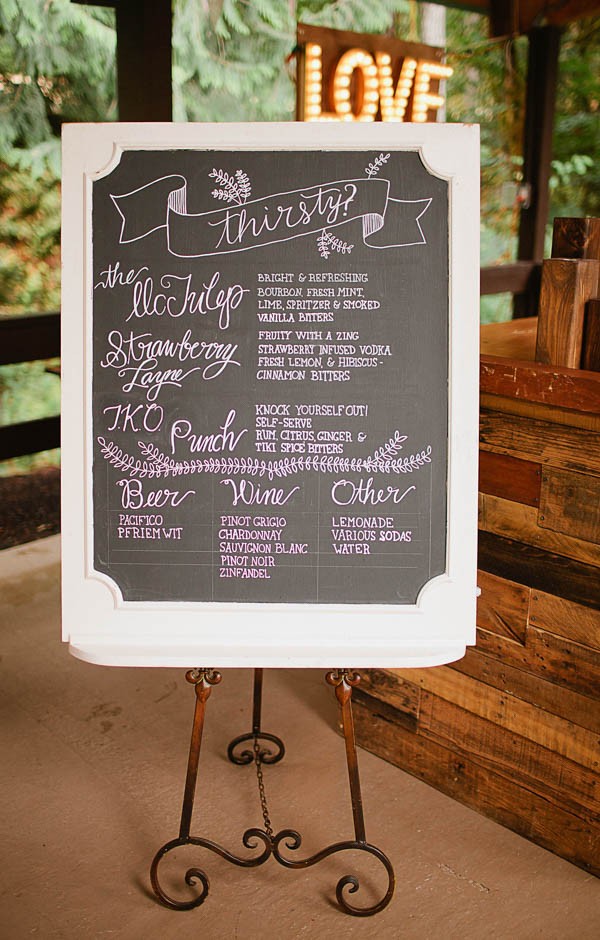 LOVE
thirsty?
the McJulep
BRIGHT & REFRESHING
BOURBON, FRESH MINT,
LIME, SPRITZER & SMOKED
VANILLA BITTERS
Strawberry
Layne
FRUITY WITH A ZING
STRAWBERRY INFUSED VODKA,
FRESH LEMON, & HIBISCUS-
CINNAMON BITTERS
T.K.O. Punch
KNOCK YOURSELF OUT!
SELF-SERVE
RUM, CITRUS, GINGER &
TIKI SPICE BITTERS
Beer
PACIFICO
PFRIEM WIT
Wine
PINOT GRIGIO
CHARDONNAY
SAUVIGNON BLANC
PINOT NOIR
ZINFANDEL
Other
LEMONADE
VARIOUS SODAS
WATER